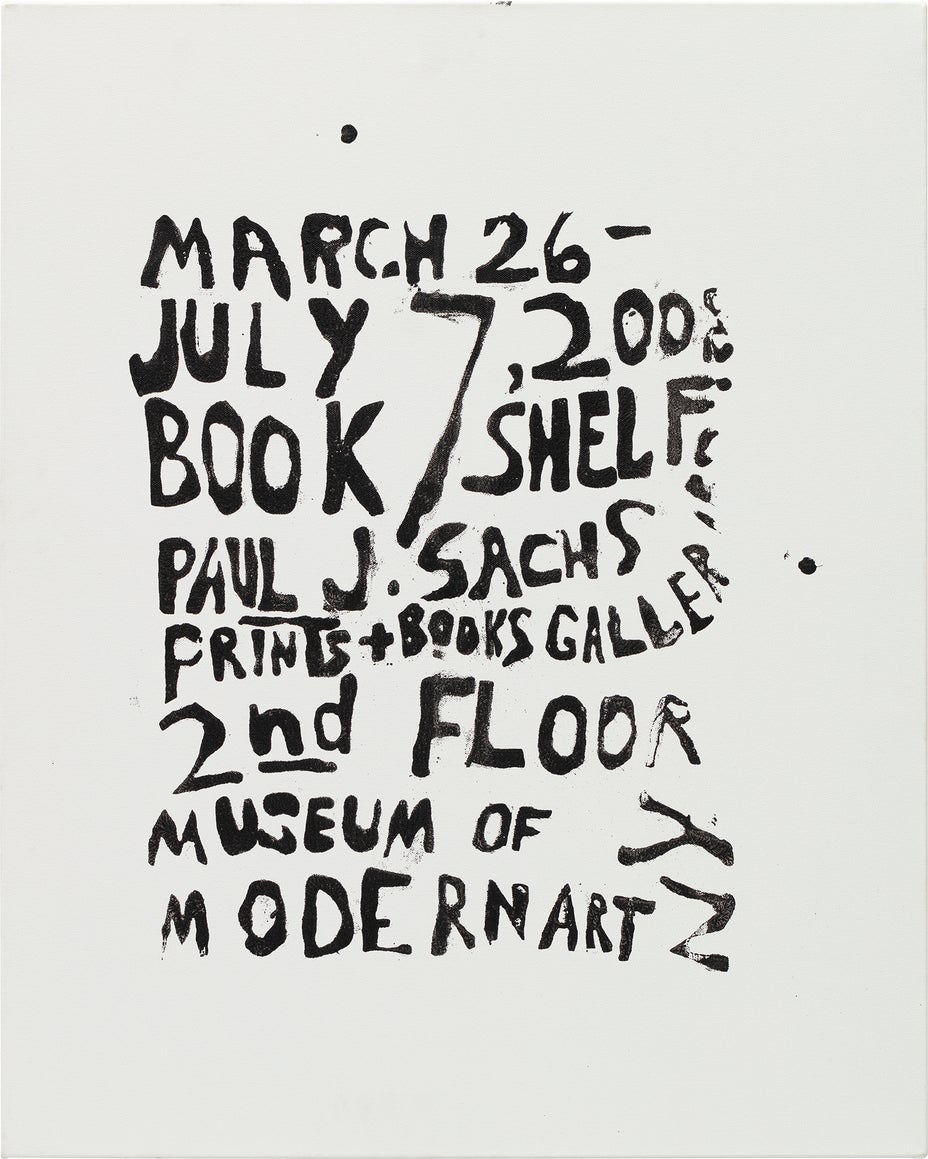 MARCH 26–
JULY 7, 2008
BOOK SHELF
PAUL J. SACHS
PRINTS + BOOKS GALLER
2nd FLOOR
MUSEUM OF
MODERN ART NY